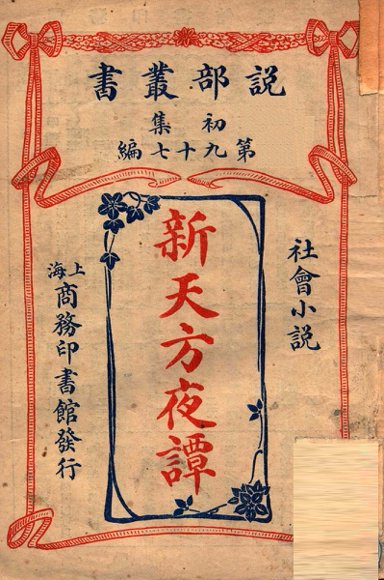 説部叢書
初集
第九十七編
社會小説
新天方夜譚
上海
商務印書館發行